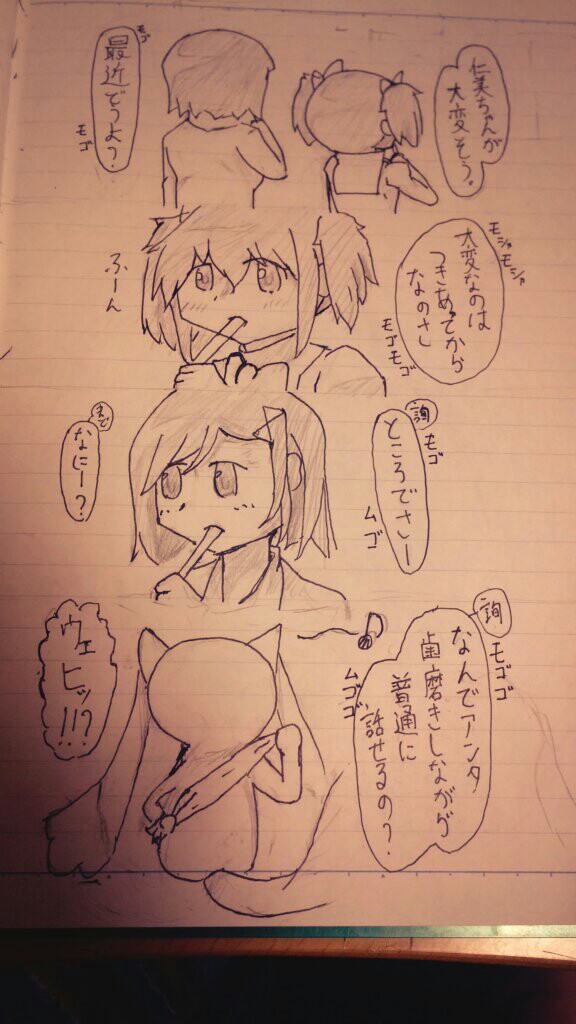 仁美ちゃんが
大変そう。
モゴ
最近どうよ？
モゴ
モシャモシャ
大変なのは
つきあってから
なのさ
モゴモゴ
ふーん
詢
モゴ
ところでさー
ムゴ
まど
なにー？
詢
モゴゴ
なんでアンタ
歯磨きしながら
普通に
話せるの？
ムゴゴ
ウェ
ヒッ!!?